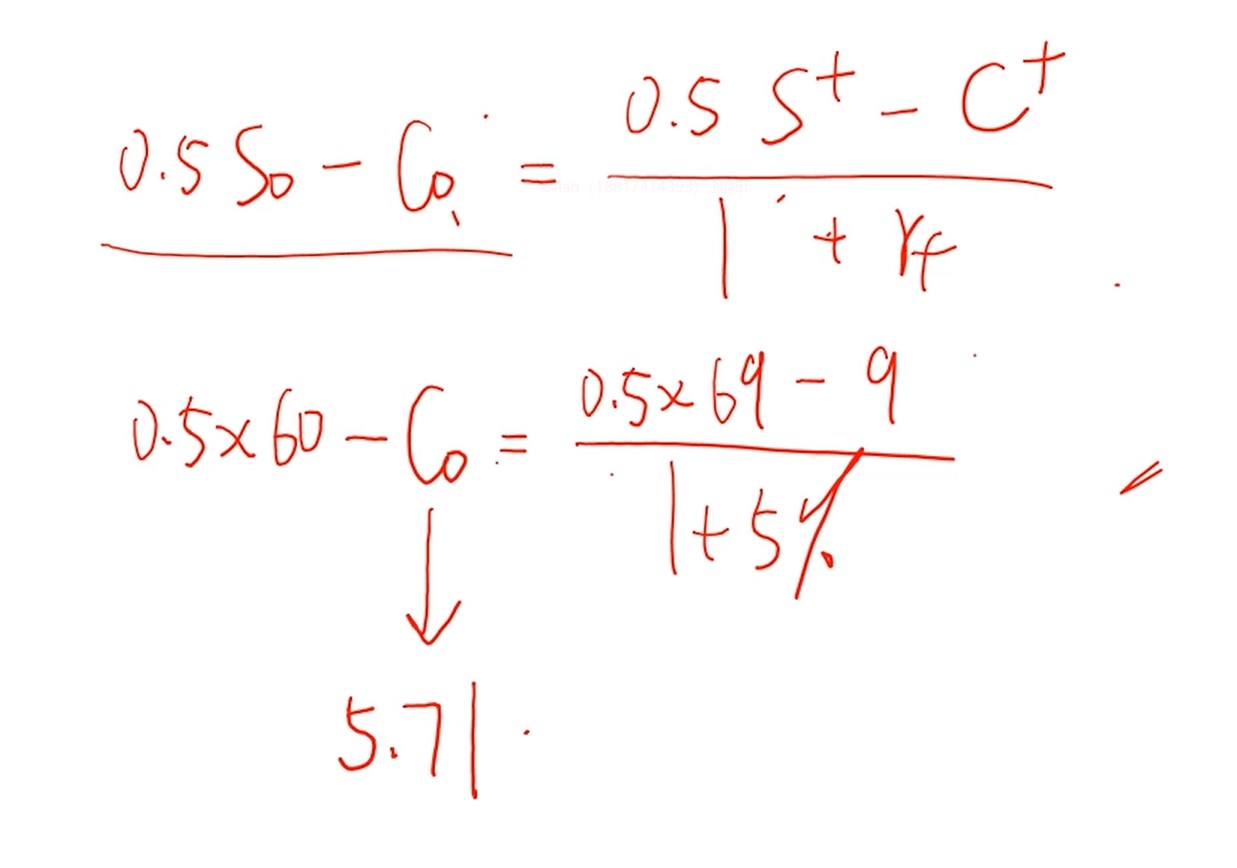 0.5 S₀ - C₀ = (0.5 S⁺ - C⁺) / (1 + rf)
0.5×60 - C₀ = (0.5×69 - 9) / (1+5%)
↓
5.71